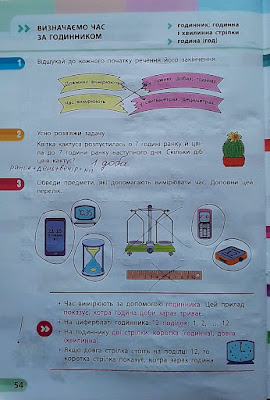 ВИЗНАЧАЄМО ЧАС
ЗА ГОДИННИКОМ
годинник; годинна
і хвилинна стрілки
година (год)
1
Відшукай до кожного початку речення його закінчення.
Довжину вимірюють
Час вимірюють
2
Усно розв'яжи задачу.
Квітка кактуса розпустилась о 7 годині ранку й цві-
ла до 7 години ранку наступного дня. Скільки діб
цвів кактус?
1 доба
3
Обведи предмети, які допомагають вимірювати час. Доповни цей
перелік.
• Час вимірюють за допомогою годинника. Цей прилад
показує, котра година доби зараз триває.
• На циферблаті годинника 12 поділок: 1, 2, ... 12.
• На годиннику дві стрілки: коротка (годинна), довга
(хвилинна).
• Якщо довга стрілка стоїть на поділці 12, то
коротка стрілка показує, котра зараз година
54